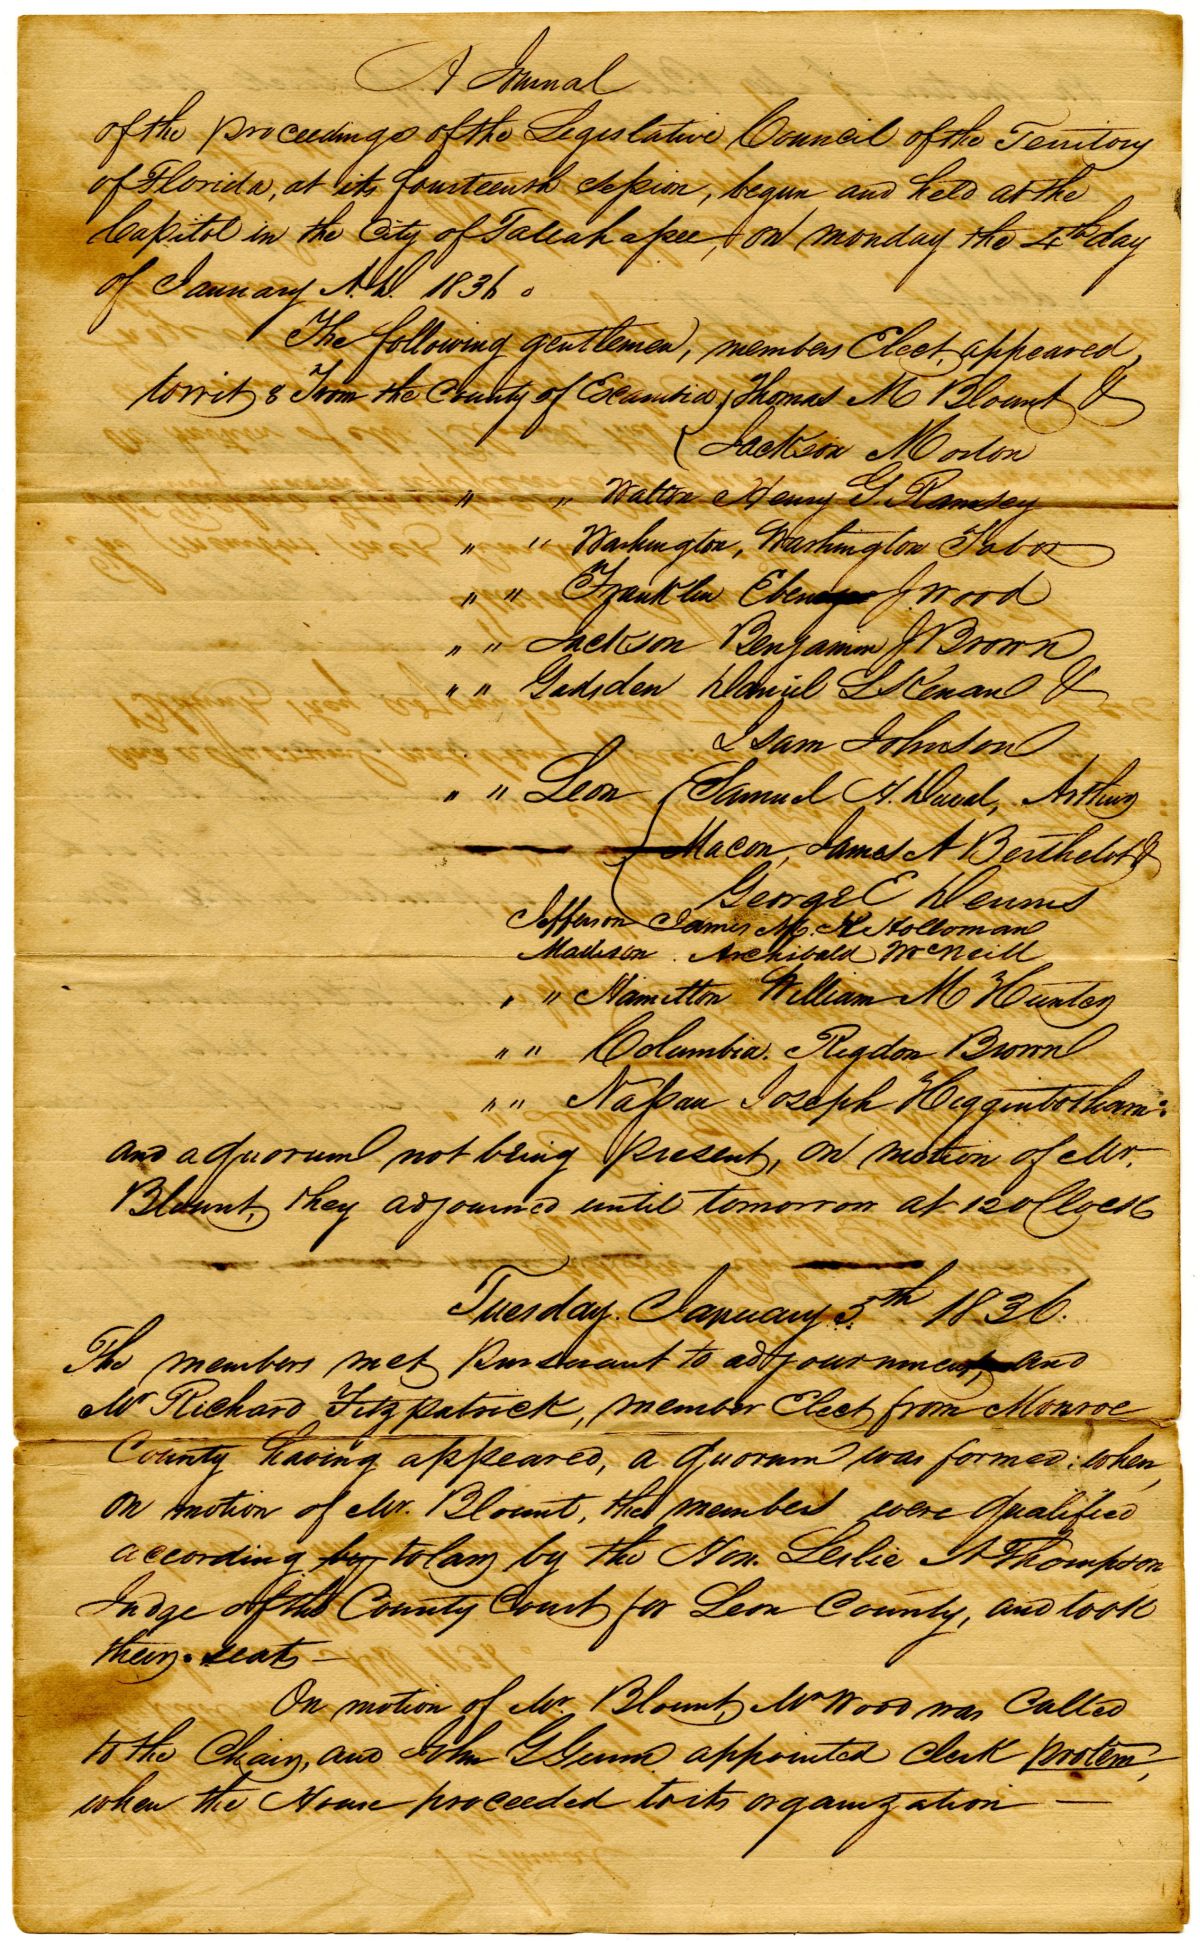 A Journal
of the proceedings of the Legislative Council of the Territory
of Florida, at its fourteenth session, begun and held at the
Capitol in the City of Tallahassee, on monday the 4th day
of January A.D. 1836.
The following gentlemen, members Elect, appeared,
towit: From the County of Escambia, Thomas M Blount &
Jackson Morton
" " Walton Henry G. Ramsey
" " Washington, Washington Tabor
" " Franklin Ebenezer J. Wood
" " Jackson Benjamin J Brown
" " Gadsden Daniel L Kenan &
Isam Johnson
" " Leon Samuel H. Duval, Arthur
Macon, James A Berthelot &
George E Dennis
Jefferson James M. H. Holloman
Madison Archibald McNeill
" " Hamilton William M Hunter
" " Columbia. Rigdon Brown
" " Nassau Joseph Higginbotham:
and a quorum not being present, on motion of Mr.
Blount, they adjourned until tomorrow at 12 oClock
Tuesday. January 5th 1836.
The members met pursuant to adjournment, and
Mr Richard Fitzpatrick, member Elect from Monroe
County having appeared, a quorum was formed: when,
on motion of Mr. Blount, the members were qualified
according by to law by the Hon. Leslie A Thompson,
Judge of the County Court for Leon County, and took
their seats —
On motion of Mr. Blount, Mr Wood was called
to the Chair, and John G Gunn appointed clerk protem,
when the House proceeded to its organization —